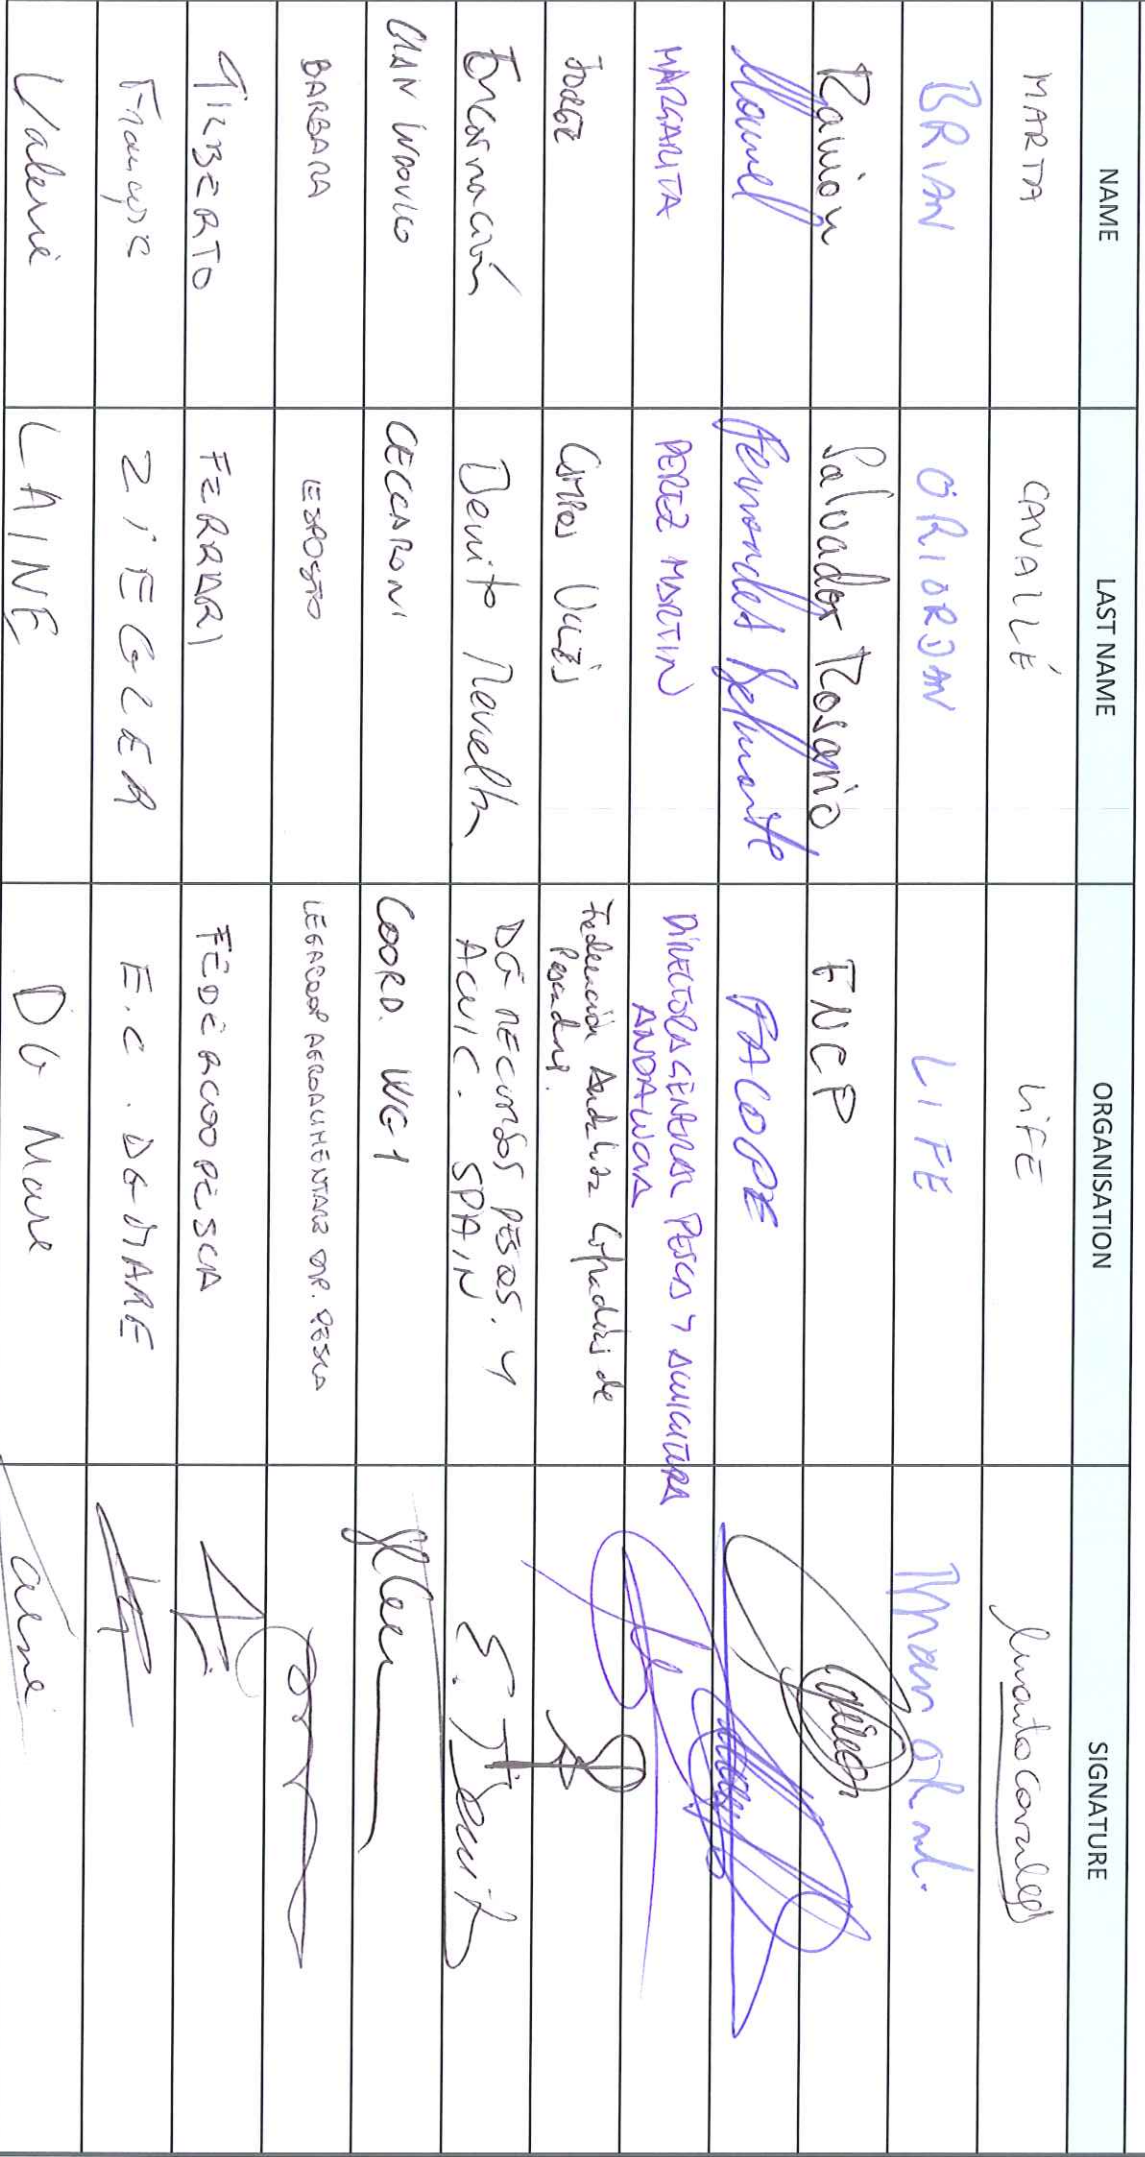 NAME LAST NAME ORGANISATION SIGNATURE
MARTA CAVALLÉ LiFE
BRIAN O'RIORDAN LIFE
Ramón Salvador Rosario FNCP
Manuel Fernández Belmonte FACOPE
MARGARITA PEREZ MARTIN DIRECTORA GENERAL PESCA Y ACUICULTURA
ANDALUCIA
JORGE Campos Federación Andaluza Cofradías de
Pescadores.
Encarnación Benito Revuelta DG RECURSOS PESQS. Y
ACUIC. SPAIN E. Benito
GIAN LUDOVICO CECCARONI COORD. WG1
BARBARA ESPOSITO LEGACOOP AGROALIMENTARE DIP. PESCA
GILBERTO FERRARI FEDERCOOPESCA
Françoise ZIEGLER E.C. DG MARE
Valerie LAINE DG Mare